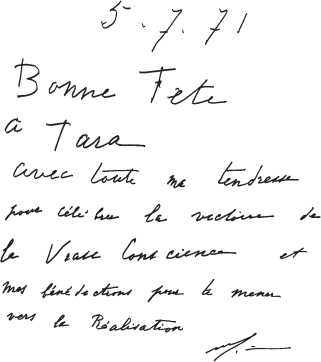 5.7.71
Bonne Fête
à Tara
avec toute ma tendresse
pour célébrer la victoire de
la Vraie Conscience et
mes bénédictions pour te mener
vers la Réalisation